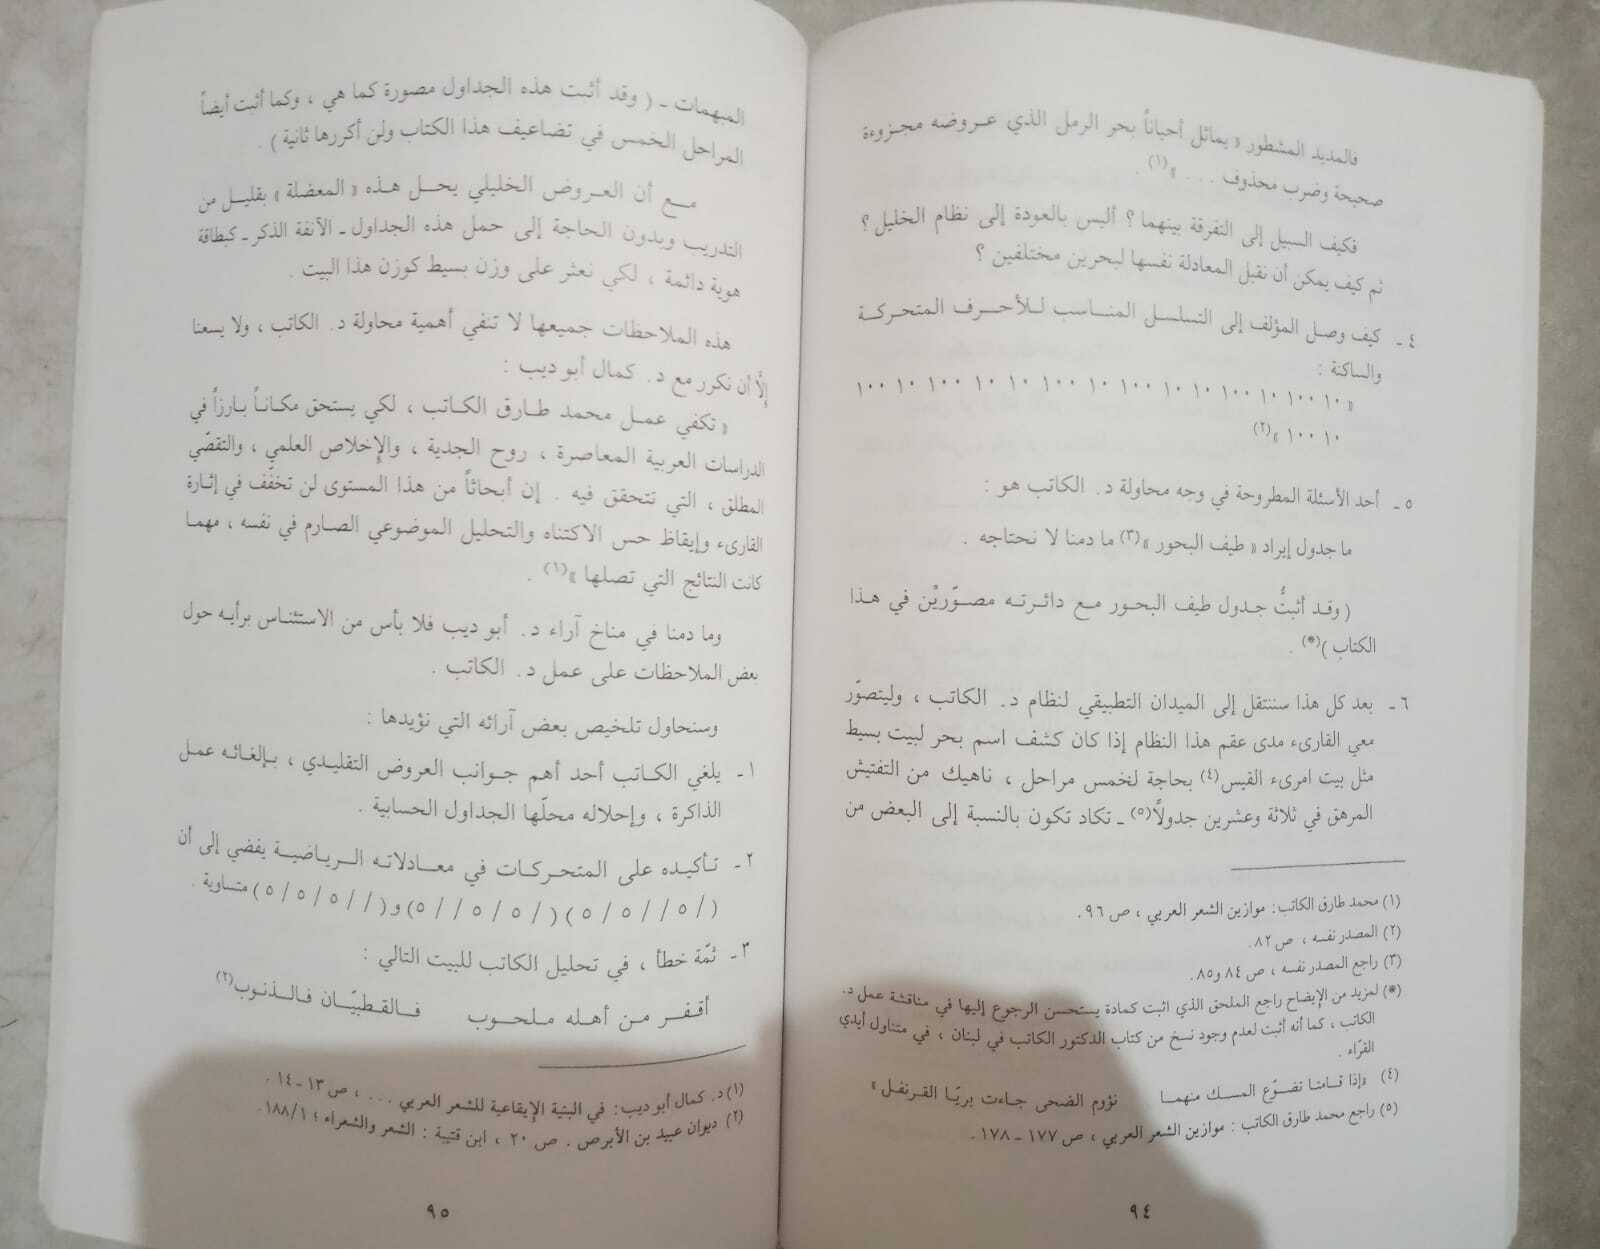 فالمديد المشطور « يماثل أحياناً بحر الرمل الذي عروضه مجزوءة
صحيحة وضرب محذوف . . . »(١) .
فكيف السبيل إلى التفرقة بينهما ؟ أليس بالعودة إلى نظام الخليل ؟
ثم كيف يمكن أن نقبل المعادلة نفسها لبحرين مختلفين ؟
٤ ـ كيف وصل المؤلف إلى التسلسل المناسب للأحرف المتحركة
والساكنة :
« ١٠ ١٠٠ ١٠ ١٠٠ ١٠ ١٠ ١٠٠ ١٠ ١٠٠ ١٠ ١٠ ١٠٠ ١٠ ١٠٠
١٠ ١٠٠ »(٢)
٥ ـ أحد الأسئلة المطروحة في وجه محاولة د. الكاتب هو :
ما جدول إيراد « طيف البحور »(٣) ما دمنا لا نحتاجه .
( وقد أثبتُّ جدول طيف البحور مع دائرته مصوّريْن في هذا
الكتاب )(*) .
٦ ـ بعد كل هذا سننتقل إلى الميدان التطبيقي لنظام د. الكاتب ، وليتصوّر
معي القارىء مدى عقم هذا النظام إذا كان كشف اسم بحر لبيت بسيط
مثل بيت امرىء القيس(٤) بحاجة لخمس مراحل ، ناهيك من التفتيش
المرهق في ثلاثة وعشرين جدولاً(٥) ـ تكاد تكون بالنسبة إلى البعض من
(١) محمد طارق الكاتب: موازين الشعر العربي ، ص ٩٦.
(٢) المصدر نفسه ، ص ٨٢.
(٣) راجع المصدر نفسه ، ص ٨٤ و٨٥.
(*) لمزيد من الإيضاح راجع الملحق الذي اثبت كمادة يستحسن الرجوع إليها في مناقشة عمل د.
الكاتب ، كما أنه أثبت لعدم وجود نسخ من كتاب الدكتور الكاتب في لبنان ، في متناول أيدي
القرّاء .
(٤) «إذا قامتا تضوّع المسك منهما نؤوم الضحى جاءت بريّا القرنفل »
(٥) راجع محمد طارق الكاتب : موازين الشعر العربي ، ص ١٧٧ ـ ١٧٨ .
٩٤
المبهمات ـ ( وقد أثبت هذه الجداول مصورة كما هي ، وكما أثبت أيضاً
المراحل الخمس في تضاعيف هذا الكتاب ولن أكررها ثانية ) .
مع أن العروض الخليلي يحل هذه « المعضلة » بقليل من
التدريب وبدون الحاجة إلى حمل هذه الجداول ـ الآنفة الذكر ـ كبطاقة
هوية دائمة ، لكي نعثر على وزن بسيط كوزن هذا البيت .
هذه الملاحظات جميعها لا تنفي أهمية محاولة د. الكاتب ، ولا يسعنا
إلاَّ أن نكرر مع د. كمال أبو ديب :
« تكفي عمل محمد طارق الكاتب ، لكي يستحق مكاناً بارزاً في
الدراسات العربية المعاصرة ، روح الجدية ، والإخلاص العلمي ، والتقصّي
المطلق ، التي تتحقق فيه . إن أبحاثاً من هذا المستوى لن تخفّف في إثارة
القارىء وإيقاظ حس الاكتناه والتحليل الموضوعي الصارم في نفسه ، مهما
كانت النتائج التي تصلها »(١) .
وما دمنا في مناخ آراء د. أبو ديب فلا بأس من الاستئناس برأيه حول
بعض الملاحظات على عمل د. الكاتب .
وسنحاول تلخيص بعض آرائه التي نؤيدها :
١ ـ يلغي الكاتب أحد أهم جوانب العروض التقليدي ، بإلغائه عمل
الذاكرة ، وإحلاله محلّها الجداول الحسابية .
٢ ـ تأكيده على المتحركات في معادلاته الرياضية يفضي إلى أن
( / ٥ / / ٥ / ٥ ) ( / ٥ / ٥ / / ٥) و ( / / ٥ / ٥ / ٥ ) متساوية .
٣ ـ ثمّة خطأ ، في تحليل الكاتب للبيت التالي :
أقفر من أهله ملحوب فالقطبيّان فالذنوب(٢)
(١) د. كمال أبو ديب: في البنية الإيقاعية للشعر العربي . . . ، ص ١٣ ـ ١٤ .
(٢) ديوان عبيد بن الأبرص . ص ٢٠ ، ابن قتيبة : الشعر والشعراء ؛ ١/ ١٨٨.
٩٥